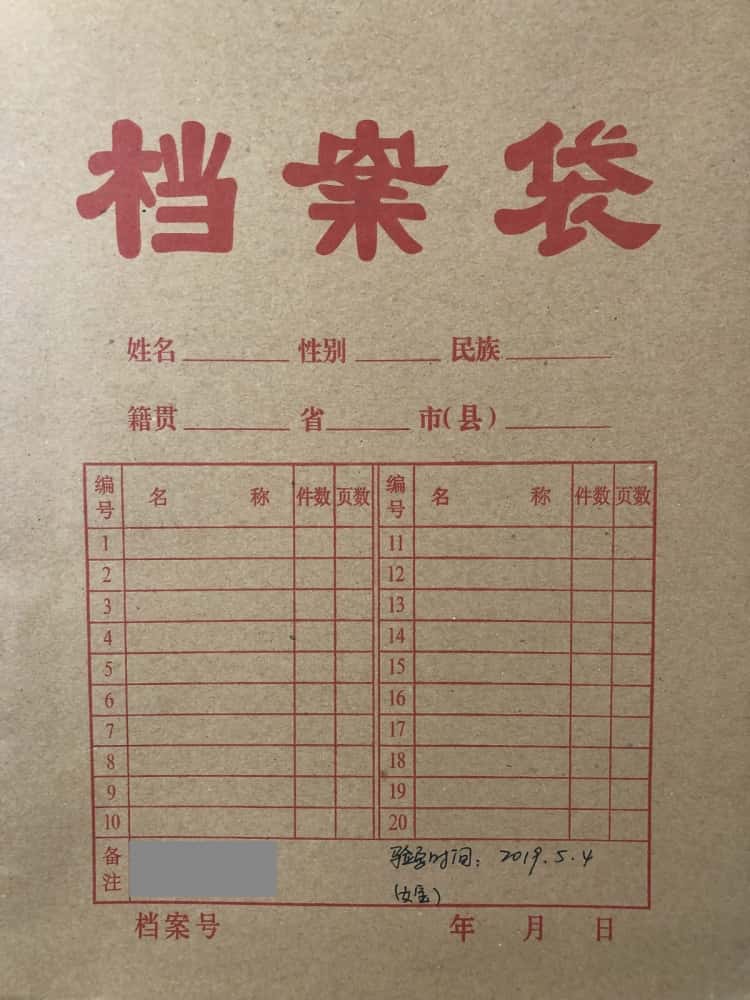 档案袋
姓名 性别 民族
籍贯 省 市(县)
编号 名称 件数 页数 编号 名称 件数 页数
1 11
2 12
3 13
4 14
5 15
6 16
7 17
8 18
9 19
10 20
备注 时间：2019.5.4
(女宝)
档案号 年 月 日